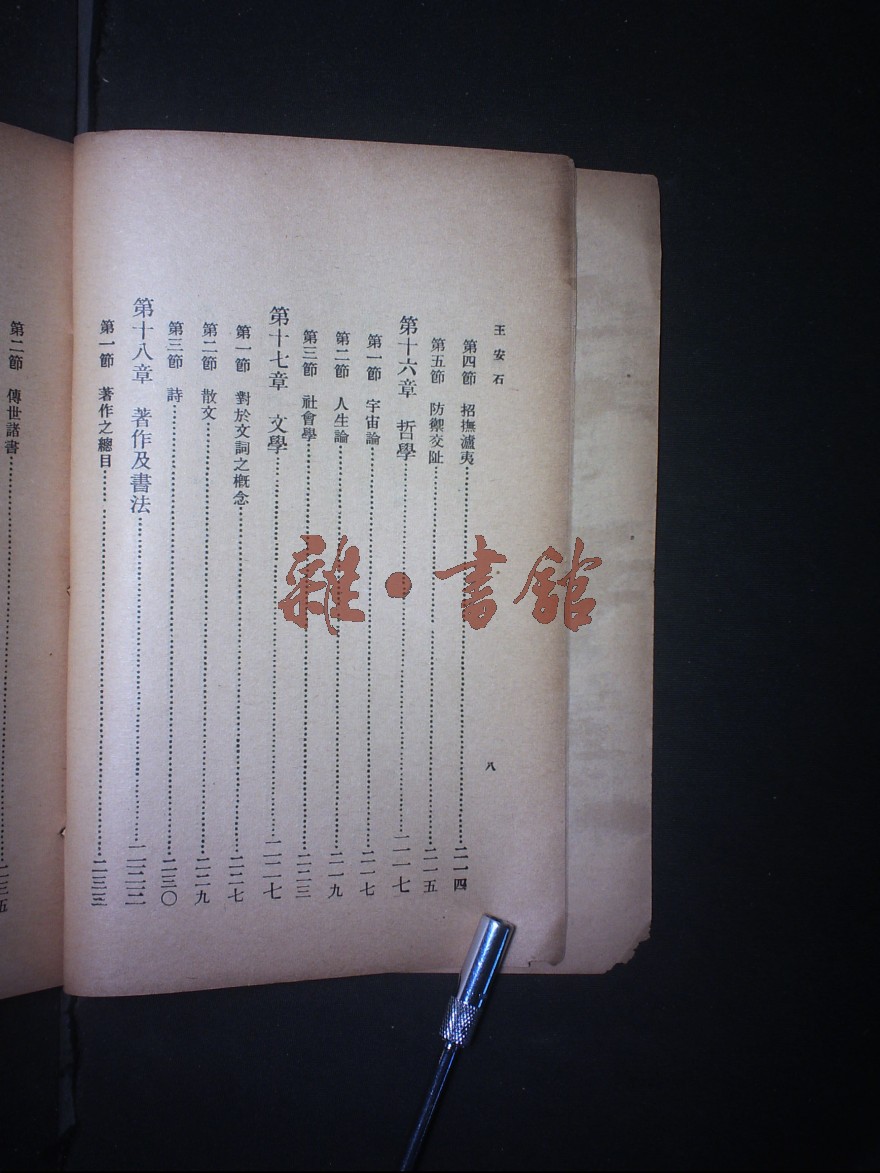 王安石
八
第四節 招撫瀘夷……二一四
第五節 防禦交趾……二一五
第十六章 哲學……二一七
第一節 宇宙論……二一七
第二節 人生論……二一九
第三節 社會學……二二三
第十七章 文學……二二七
第一節 對於文詞之概念……二二七
第二節 散文……二二九
第三節 詩……二三〇
第十八章 著作及書法……二三三
第一節 著作之總目……二三三
第二節 傳世諸書……二三五
雜·書館